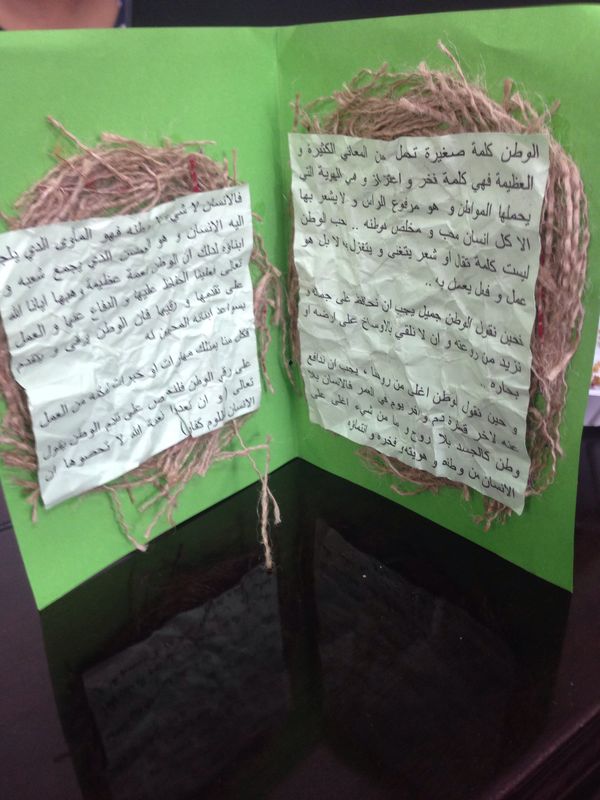 الوطن كلمة صغيرة تحمل من المعاني الكثيرة و
العظيمة فهي كلمة فخر و اعتزاز و هي الهوية التي
يحملها المواطن و هو مرفوع الراس و لا يشعر بها
الا كل انسان محب و مخلص لوطنه .. حب الوطن
ليست كلمة تقال أو شعر يتغنى و يتغزل به لا بل هو
عمل و فعل يعمل به ..
فحين نقول الوطن جميل يجب ان نحافظ على جماله و
نزيد من روعته و ان لا نلقي بالاوساخ على ارضه او
بحاره ..
و حين نقول الوطن اغلى من روحنا يجب ان ندافع
عنه لاخر قطرة دم و اخر يوم في العمر فالانسان بلا
وطن كالجسد بلا روح و ما من شيء اغلى على
الانسان من وطنه و هويته و فخره و انتمائه
فالانسان لا شيء وطنه فهو المأوى الذي
اليه الانسان و هو الذي يجمع شعبه و
ابناؤه لذلك ان الوطن نعمة عظيمة وهبها ايانا الله
تعالى فعلينا الحفاظ عليها و الدفاع عنها و العمل
على تقدمها و رقيها فان الوطن يرقى و يتقدم
بسواعد ابنائه المحبين له
فكل منا يمتلك مهارات او خبرات تمكنه من العمل
على رقي الوطن على تقدم الوطن يقول
تعالى (و ان تعدوا نعمة الله لا تحصوها ان
الانسان لظلوم كفار)